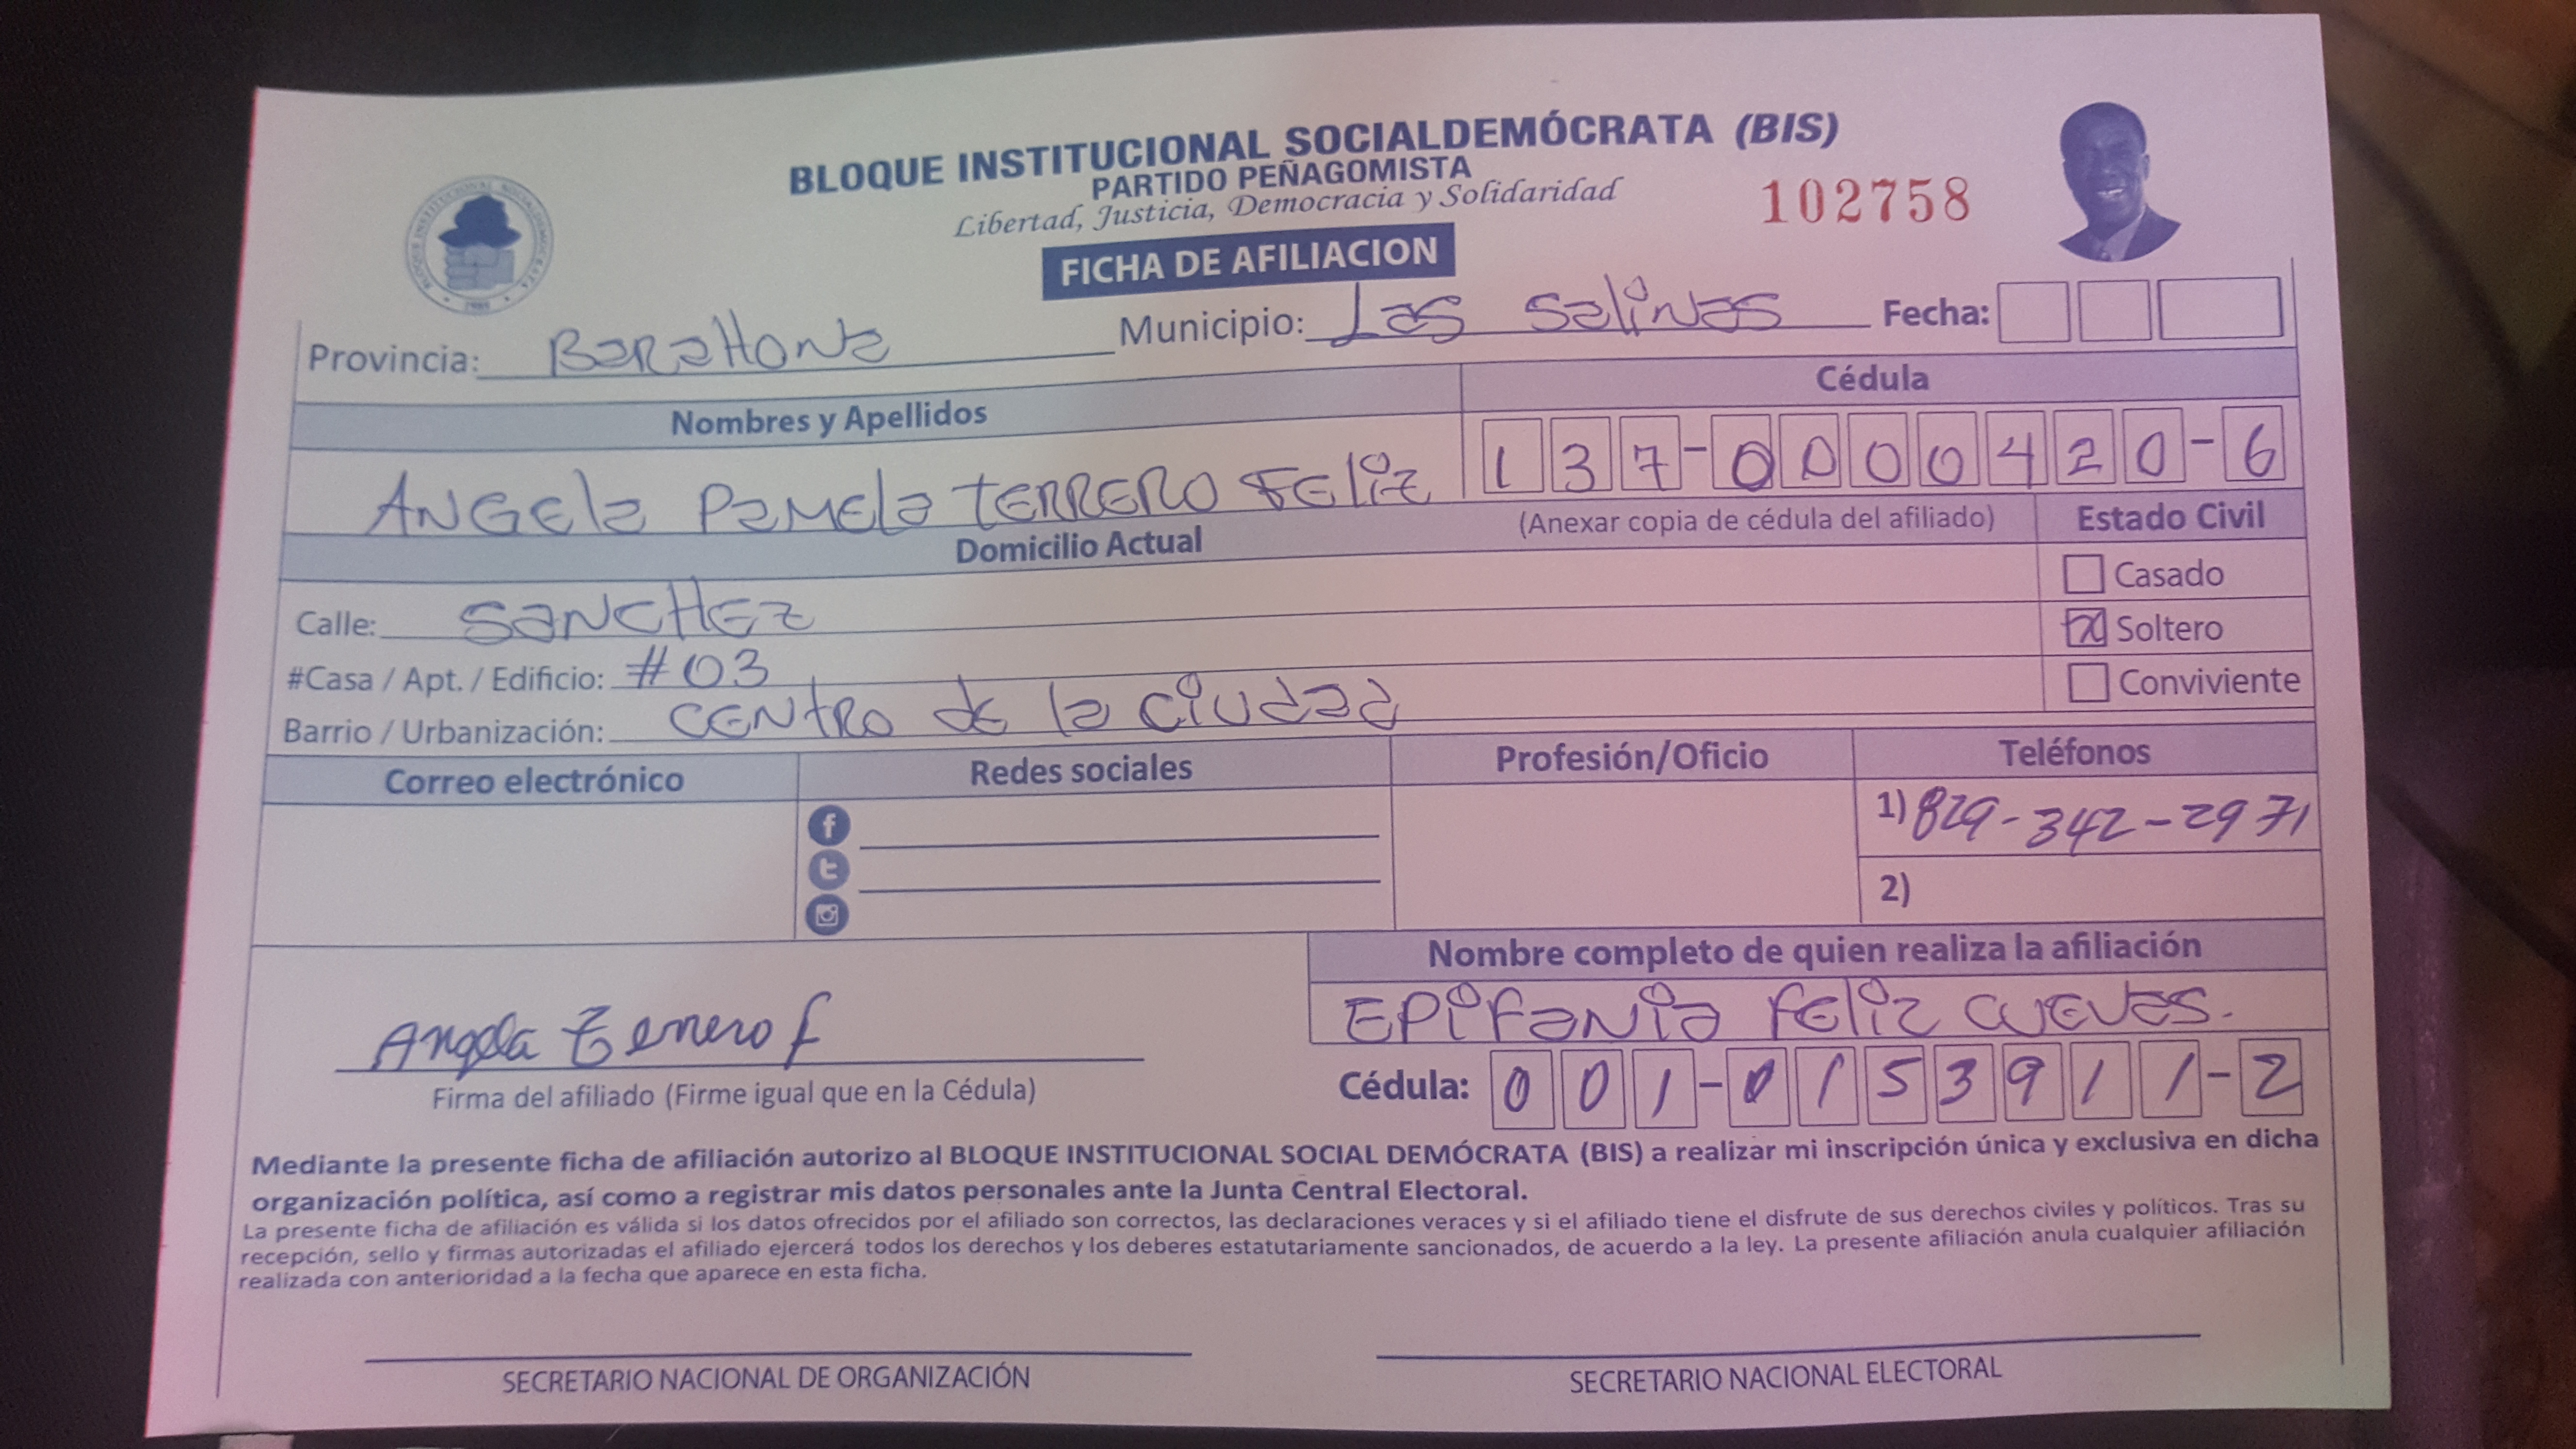 BLOQUE INSTITUCIONAL SOCIALDEMÓCRATA (BIS)
PARTIDO PEÑAGOMISTA
Libertad, Justicia, Democracia y Solidaridad
102758
FICHA DE AFILIACION
Provincia: BaRaHONa Municipio: Las SaliNas Fecha:
Nombres y Apellidos Cédula
ANGEla PaMEla tERRERO FEliz 137-0000420-6
(Anexar copia de cédula del afiliado) Estado Civil
Domicilio Actual
Casado
Calle: SaNCHEz
x Soltero
#Casa / Apt. / Edificio: #03
Conviviente
Barrio / Urbanización: CENtRO dE la Ciudad
Correo electrónico Redes sociales Profesión/Oficio Teléfonos
1) 829-342-2971
2)
Nombre completo de quien realiza la afiliación
EPiFaNia FEliz CuEVas.
Angela Terrero f
Cédula: 001-0153911-2
Firma del afiliado (Firme igual que en la Cédula)
Mediante la presente ficha de afiliación autorizo al BLOQUE INSTITUCIONAL SOCIAL DEMÓCRATA (BIS) a realizar mi inscripción única y exclusiva en dicha
organización política, así como a registrar mis datos personales ante la Junta Central Electoral.
La presente ficha de afiliación es válida si los datos ofrecidos por el afiliado son correctos, las declaraciones veraces y si el afiliado tiene el disfrute de sus derechos civiles y políticos. Tras su
recepción, sello y firmas autorizadas el afiliado ejercerá todos los derechos y los deberes estatutariamente sancionados, de acuerdo a la ley. La presente afiliación anula cualquier afiliación
realizada con anterioridad a la fecha que aparece en esta ficha.
SECRETARIO NACIONAL DE ORGANIZACIÓN SECRETARIO NACIONAL ELECTORAL